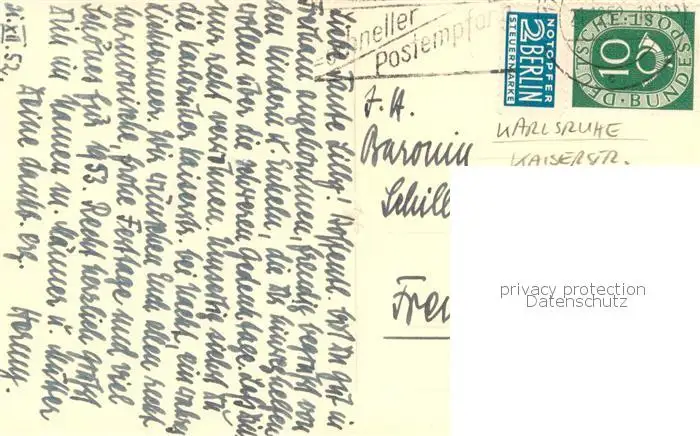 21. XII. 52.
Liebe Tante Lilly! Hoffentl. bist Du gut in
angekommen, freudig begrüßt von
den Kindern u. Enkeln, die hinweghelfen
sollen über die schweren Gedenktage. Laß Dich
nur recht verwöhnen. Umseitig siehst Du
die Karlsruher Kaiserstr. bei Nacht, ein wahres
Lichtermeer. Wir wünschen Euch allen recht
harmonische, frohe Festtage und viel
Schönes für 1953. Recht herzlich grüßt
Dich im Namen m. Männer u. Mutter
Deine dankb. erg.
Schneller
Postempfang
NOTOPFER
2 BERLIN
STEUERMARKE
DEUTSCHE BUNDESPOST
10
Baronin
Schill
Frei
KARLSRUHE
KAISERSTR.
privacy protection
Datenschutz